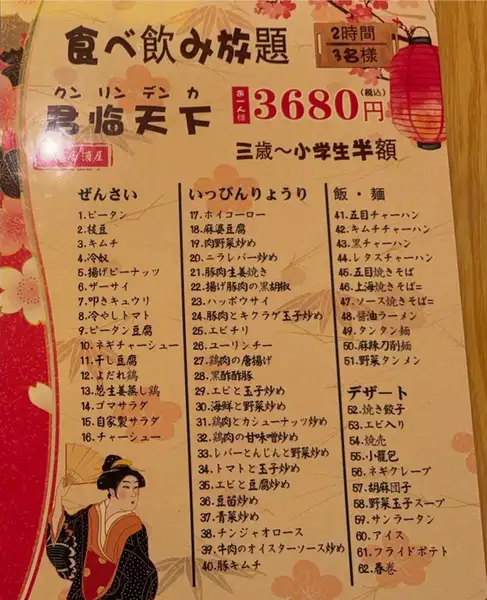 食べ飲み放題
2時間
3名様
クン リン デン カ
君臨天下
酒屋
お一人様 3680円 (税込)
三歳～小学生半額
ぜんさい
1.ピータン
2.枝豆
3.キムチ
4.冷奴
5.揚げピーナッツ
6.ザーサイ
7.叩きキュウリ
8.冷やしトマト
9.ピータン豆腐
10.ネギチャーシュー
11.干し豆腐
12.よだれ鶏
13.葱生姜蒸し鶏
14.ゴマサラダ
15.自家製サラダ
16.チャーシュー
いっぴんりょうり
17.ホイコーロー
18.麻婆豆腐
19.肉野菜炒め
20.ニラレバー炒め
21.豚肉生姜焼き
22.揚げ豚肉の黒胡椒
23.ハッポウサイ
24.豚肉とキクラゲ玉子炒め
25.エビチリ
26.ユーリンチー
27.鶏肉の唐揚げ
28.黒酢酢豚
29.エビと玉子炒め
30.海鮮と野菜炒め
31.鶏肉とカシューナッツ炒め
32.鶏肉の甘味噌炒め
33.レバーとんじんと野菜炒め
34.トマトと玉子炒め
35.エビと豆腐炒め
36.豆苗炒め
37.青菜炒め
38.チンジャオロース
39.牛肉のオイスターソース炒め
40.豚キムチ
飯・麺
41.五目チャーハン
42.キムチチャーハン
43.黒チャーハン
44.レタスチャーハン
45.五目焼きそば
46.上海焼きそば=
47.ソース焼きそば=
48.醤油ラーメン
49.タンタン麺
50.麻辣刀削麺
51.野菜タンメン
デザート
52.焼き餃子
53.エビ入り
54.焼売
55.小籠包
56.ネギクレープ
57.胡麻団子
58.野菜玉子スープ
59.サンラータン
60.アイス
61.フライドポテト
62.春巻